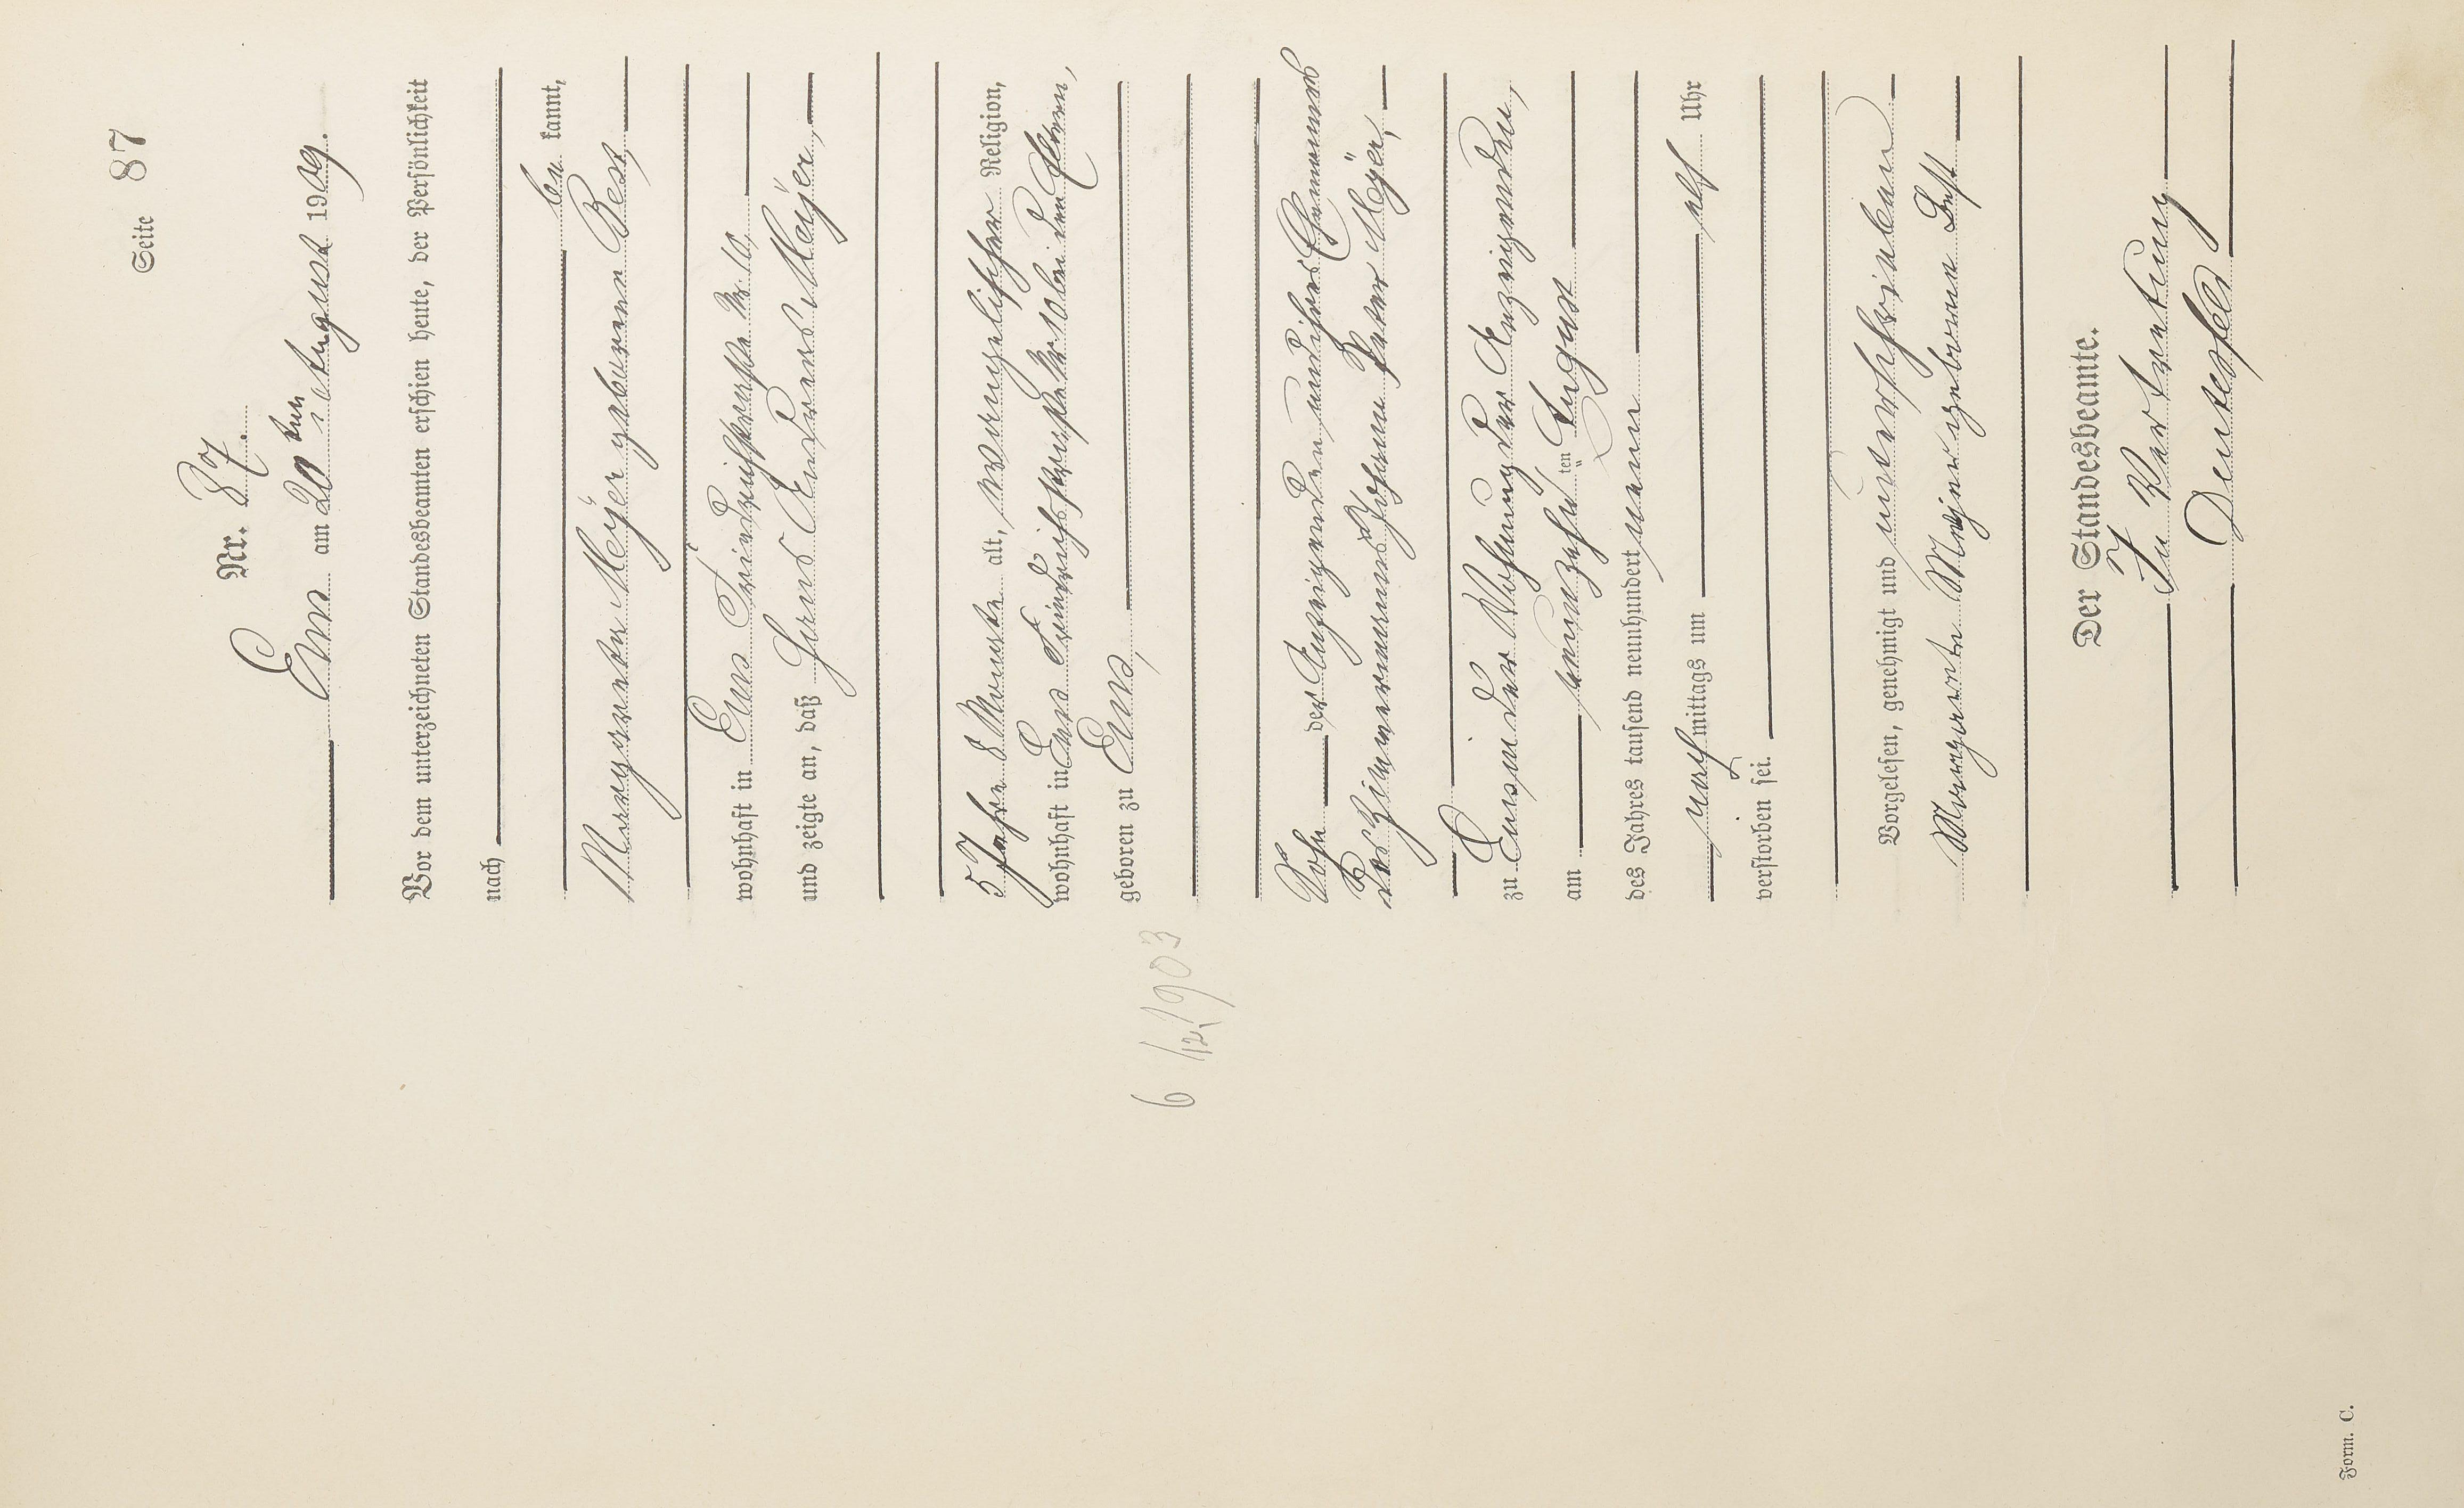 Seite 87
Nr. 87.
Ems am 20ten August 1909.
Vor dem unterzeichneten Standesbeamten erschien heute, der Persönlichkeit
nach
be kannt,
Margarete Meÿer geborene Best,
wohnhaft in Ems Friedrichstraße Nr. 10,
und zeigte an, daß Hans Andreas Meÿer,
5 Jahre 8 Monate alt, evangelischer Religion,
wohnhaft in Ems Friedrichstraße Nr 10 bei den Eltern,
geboren zu Ems,
6/12 1903
Sohn der Anzeigenden und ihres Ehemannes
des Zimmermanns Johann Peter Meÿer,
zu Ems in der Wohnung der Anzeigenden,
am neunzehn ten August
des Jahres tausend neunhundert neun
nach mittags um elf Uhr
verstorben sei.
Vorgelesen, genehmigt und unterschrieben
Margarete Meyer geborene Best
Der Standesbeamte.
In Vertretung
Form. C.